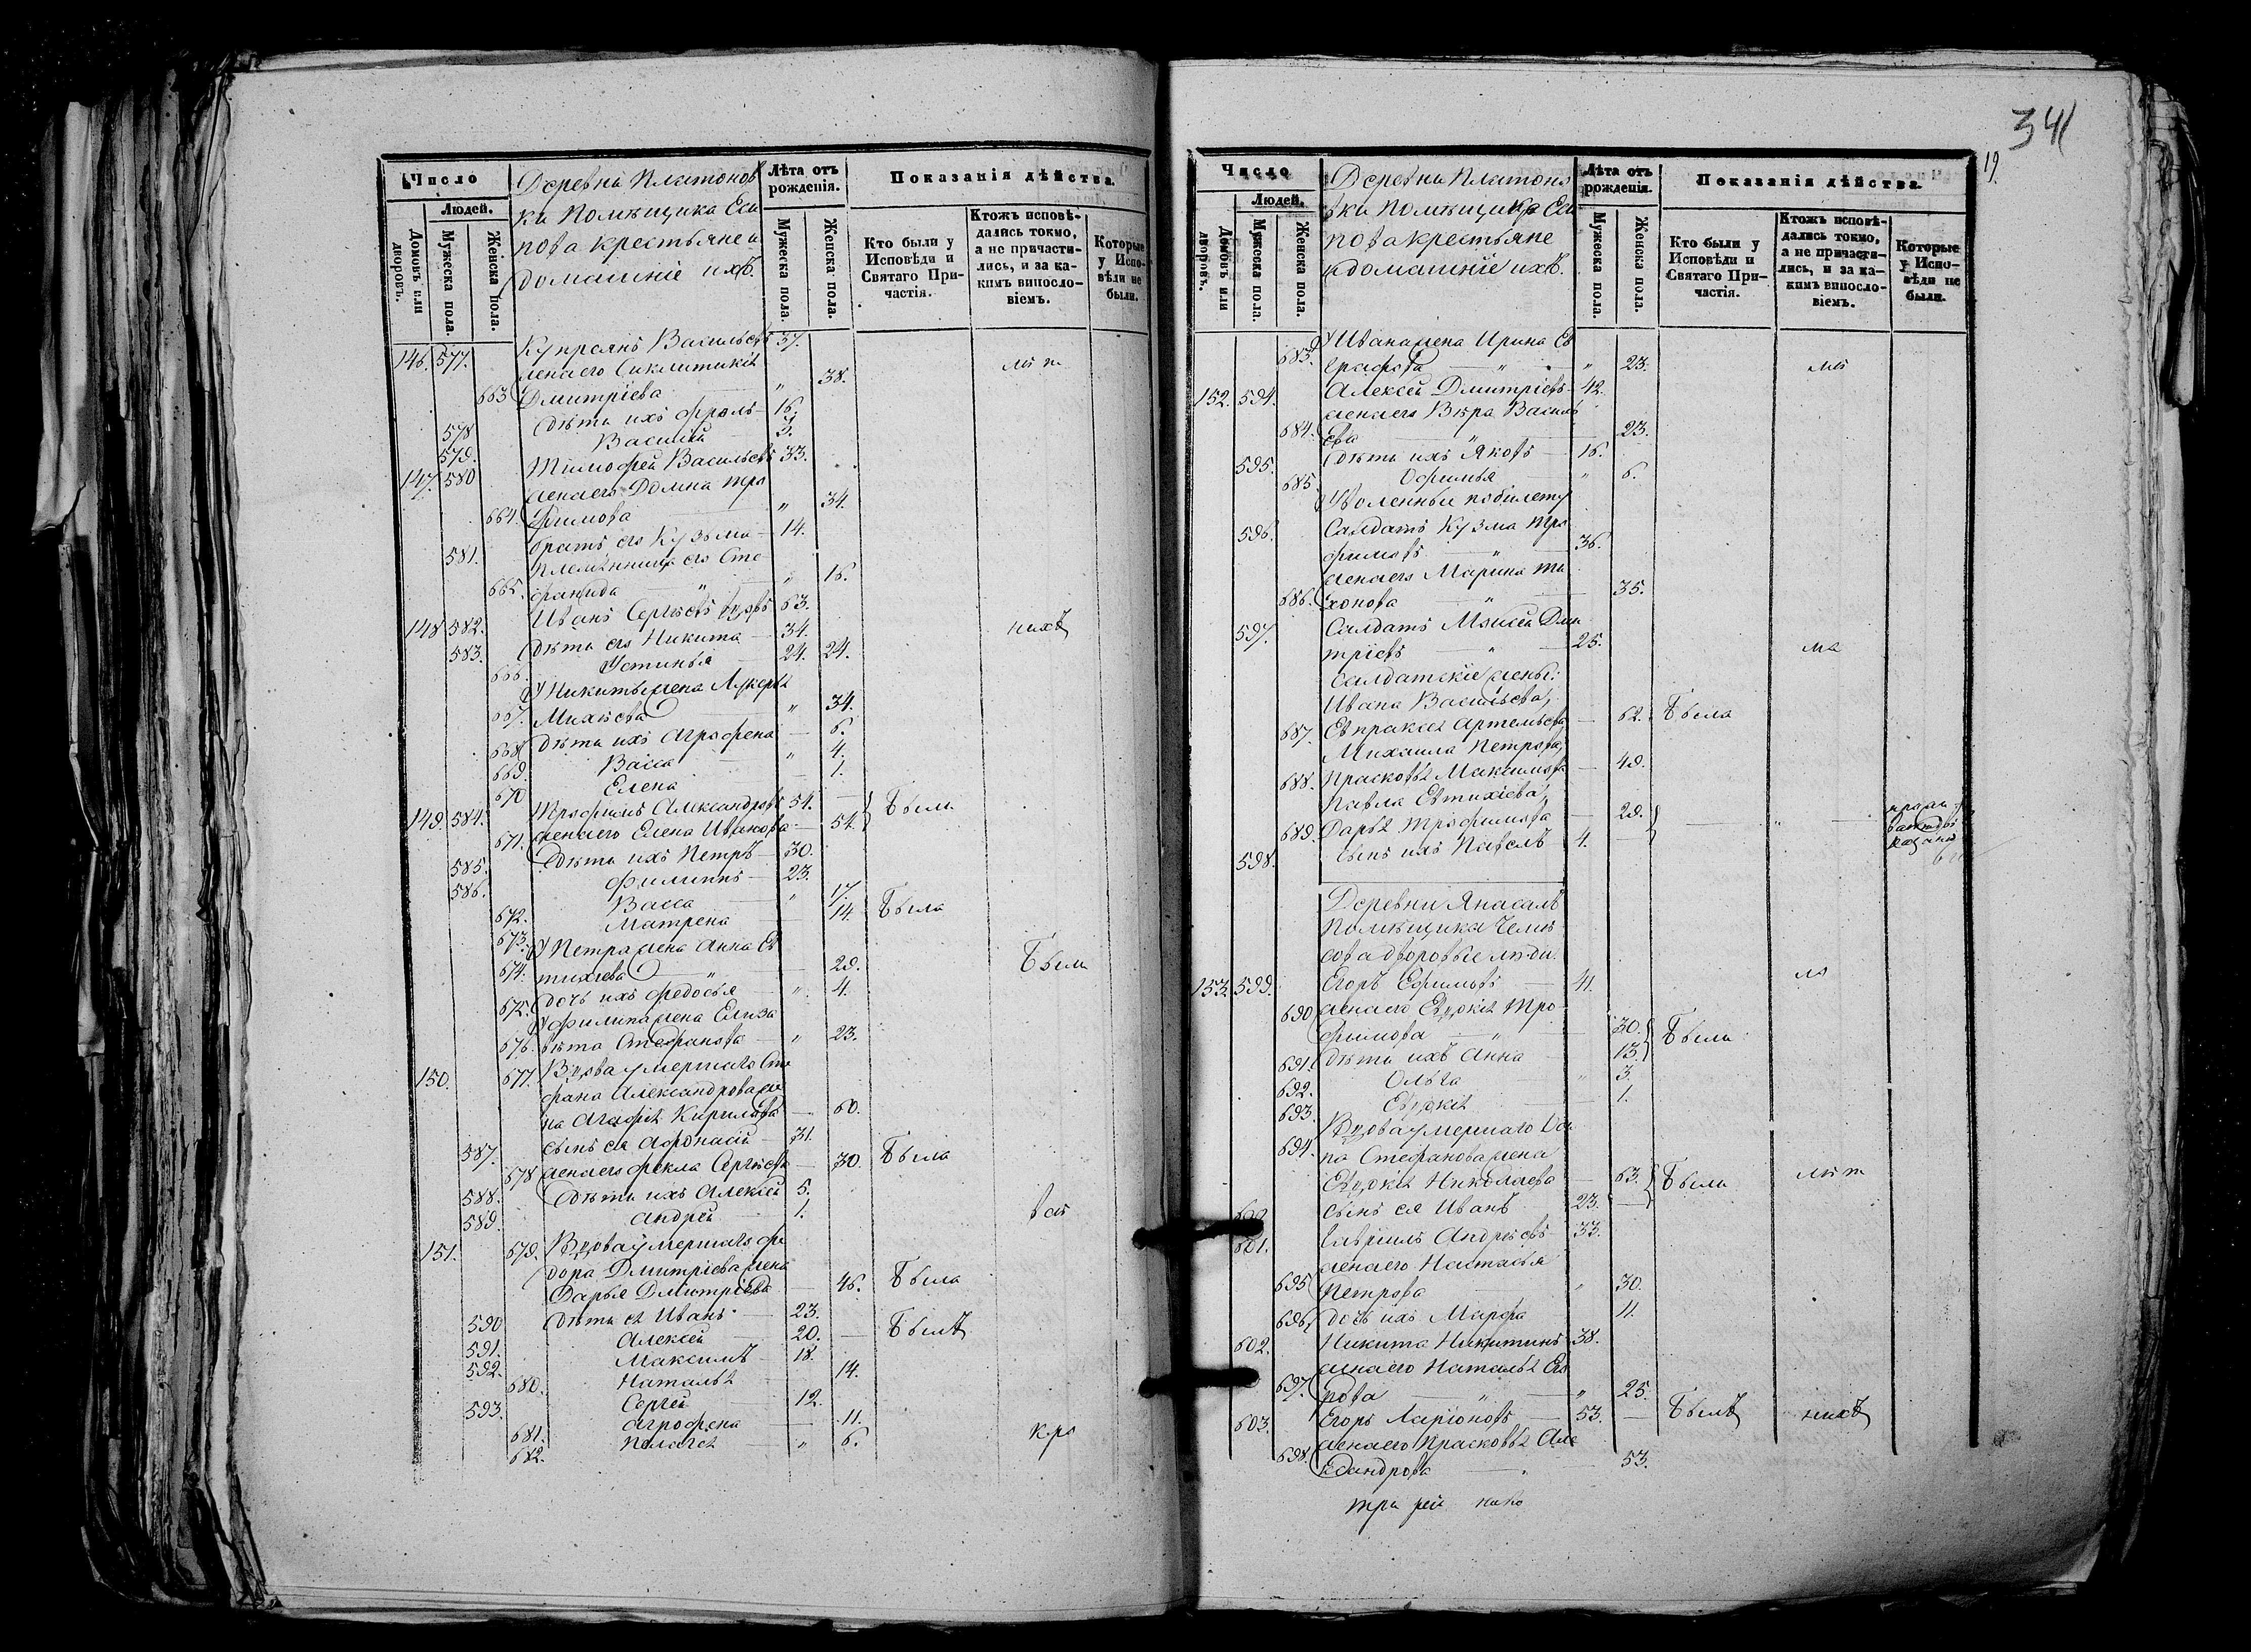 Число
Людей.
Домовъ или дворовъ.
Мужеска пола.
Женска пола.
Деревни Платонов
ки Помѣщика Еси
пова крестьяне и
домашніе ихъ.
Лѣта отъ рожденія.
Мужеска пола.
Женска пола.
Показанія дѣйства.
Кто были у Исповѣди и Святаго Причастія.
Ктожъ исповѣдались токмо, а не причастились, и за какимъ винословіемъ.
Которые у Исповѣди не были.
146. 577. Купрiянъ Васильевъ 37.
жена его Сиклитикія
663 Дмитріева " 38.
578 Дѣти ихъ Фролъ 16.
579. Василій 3.
147. 580 Тимофей Васильевъ 33.
жена его Домна Тро
664. фимова " 34.
581. братъ его Кузьма 14.
племянница его Сте
665. фанида " 16.
148 582. Иванъ Сергѣевъ вдовъ 63.
583. Дѣти его Никита 34.
666 Устинья 24. 24.
У Никиты жена Лукерья
667. Михѣева " 34.
668 Дѣти ихъ Агрофена 6.
669. Васса " 4.
670 Елена 1.
149. 584. Трофимъ Александровъ 54. Были
671. жена его Елена Иванова 54.
585. Дѣти ихъ Петръ 30.
586. Филиппъ 23.
672. Васса " 17.
673. Матрена 14. Была
У Петра жена Анна Ев
674. тихіева " 29. Были
675. дочь ихъ Федосья " 4.
У Филипа жена Елиза
676. вѣта Стефанова " 23.
150. 677. Вдова умершаго Сте
фана Александрова же
на Агафія Кирилова 60.
587. сынъ ея Афонасій 31.
678 жена его Фекла Сергѣева 30. Была
588. Дѣти ихъ Алексѣй 5.
589. Андрей 1.
151. 679. Вдова умершаго Фе
дора Дмитріева жена
Дарья Дмитріева 46. Была
590 Дѣти ея Иванъ 23.
591. Алексѣй 20. Былъ
592. Максимъ 18.
680. Наталья 14.
593. Сергѣй 12.
681. Агрофена 11.
682. Пелагея " 6.
341
19.
Число
Людей.
Домовъ или дворовъ.
Мужеска пола.
Женска пола.
Деревни Платоно
вки Помѣщика Еси
пова крестьяне
и домашніе ихъ.
Лѣта отъ рожденія.
Мужеска пола.
Женска пола.
Показанія дѣйства.
Кто были у Исповѣди и Святаго Причастія.
Ктожъ исповѣдались токмо, а не причастились, и за какимъ винословіемъ.
Которые у Исповѣди не были.
683. У Ивана жена Ирина Ев
графова " 23.
152. 594. Алексѣй Дмитріевъ 42.
жена его Вѣра Василь
684. ева " 23.
595. Дѣти ихъ Яковъ 16.
685. Офимья " 6.
Уволенный по билету
596. Салдатъ Кузма Тро
фимовъ " 36.
жена его Марина Ти
686. хонова " 35.
597. Салдатъ Моисей Дми
тріевъ " 25.
Салдатскіе жены:
Ивана Васильева,
687. Евпраксія Артемьева 62. Была
Михаила Петрова,
688. Прасковья Максимова 49.
Павла Евтихіева,
689. Дарья Трофимова 29.
598. сынъ ихъ Павелъ 4.
Деревни Янасалъ
Помѣщика Челис
сова дворовые люди.
153. 599. Егоръ Ефимовъ 41.
690 жена его Евдокія Тро
фимова " 30. Были
691. Дѣти ихъ Анна 13.
692. Ольга " 3.
693. Евдокія 1.
694. Вдова умершаго Оси
па Стефанова жена
Евдокія Николаева 63. Были
600 сынъ ея Иванъ 23.
601. Гавріилъ Андреевъ 33.
жена его Настасья
695 Петрова " 30.
696. дочь ихъ Марфа 11.
602. Никита Никитинъ 38.
жена его Наталья Его
697. рова " 25.
603. Егоръ Ларіоновъ 53. Былъ
698. жена его Прасковья Але
ксандрова 53.